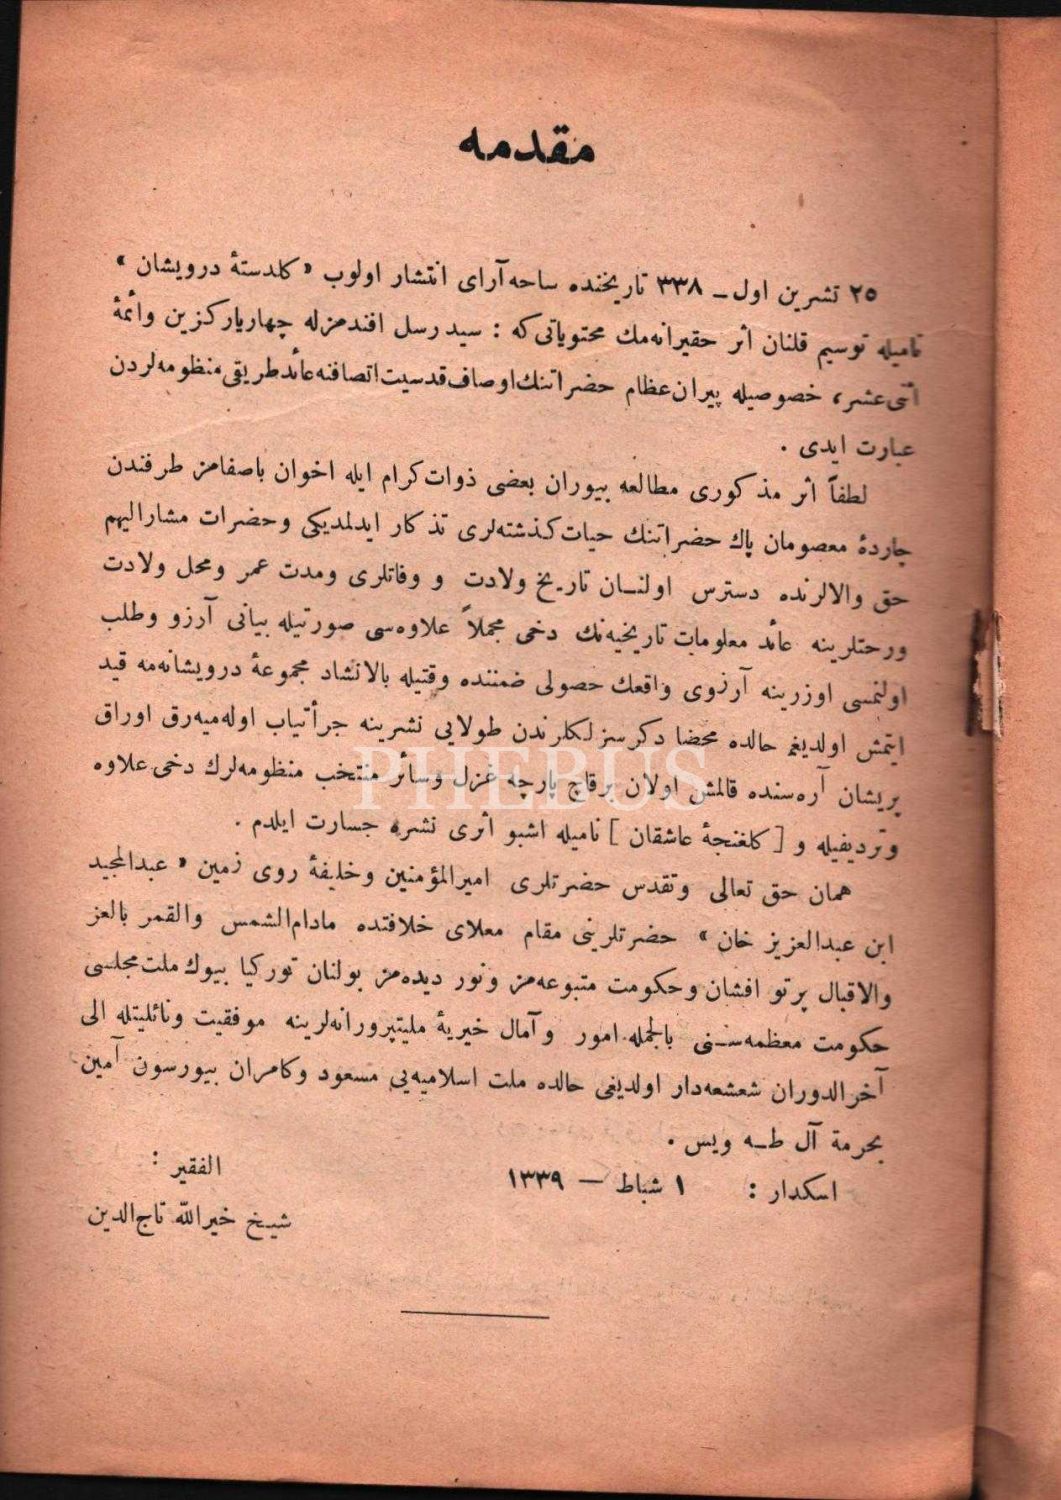 مقدمه
٢٥ تشرين اول ــ ٣٣٨ تاريخنده ساحه‌آراى انتشار اولوب « كلدستهٔ درويشان »
ناميله توسيم قلنان اثر حقيرانه‌مك محتوياتى كه : سيد رسل افندمزله چهار ياركزين وائمهٔ
اثنى عشر، خصوصيله پيران عظام حضراتنك اوصاف قدسيت اتصافنه عائد طريقى منظومه‌لردن
عبارت ايدى .
لطفاً اثر مذكورى مطالعه بيوران بعضى ذوات كرام ايله اخوان باصفامز طرفندن
چاردهٔ معصومان پاك حضراتنك حيات كذشته‌لرى تذكار ايدلمديكى وحضرات مشاراليهم
حق والالرنده دسترس اولنــان تاريخ ولادت و وفاتلرى ومدت عمر ومحل ولادت
ورحتلرينه عائد معلومات تاريخيه‌نك دخى مجملاً علاوه‌سى صورتيله بيانى آرزو وطلب
اولنمسى اوزرينه آرزوى واقعك حصولى ضمننده وقتيله بالانشاد مجموعهٔ درويشانه‌مه قيد
ايتمش اولديغم حالده محضا دكرسزلكلرندن طولايى نشرينه جرأتياب اوله‌ميه‌رق اوراق
پريشان آره‌سنده قالمش اولان برقاچ پارچه غزل وسائر منتخب منظومه‌لرك دخى علاوه
وترديفيله و [ كلغنجهٔ عاشقان ] ناميله اشبو اثرى نشره جسارت ايلدم .
همان حق تعالى وتقدس حضرتلرى اميرالمؤمنين وخليفهٔ روى زمين « عبدالمجيد
ابن عبدالعزيز خان » حضرتلرينى مقام معلاى خلافتده مادام‌الشمس والقمر بالعز
والاقبال پرتو افشان وحكومت متبوعه‌مز ونور ديده‌مز بولنان توركيا بيوك ملت مجلسى
حكومت معظمه‌ســنى بالجمله امور وآمال خيريهٔ مليتپرورانه‌لرينه موفقيت ونائليتله الى
آخرالدوران شعشعه‌دار اولديغى حالده ملت اسلاميه‌يى مسعود وكامران بيورسون آمين
بحرمة آل طــه ويس .
اسكدار : ١ شباط — ١٣٣٩
الفقير :
شيخ خيرالله تاج‌الدين
PHEBUS